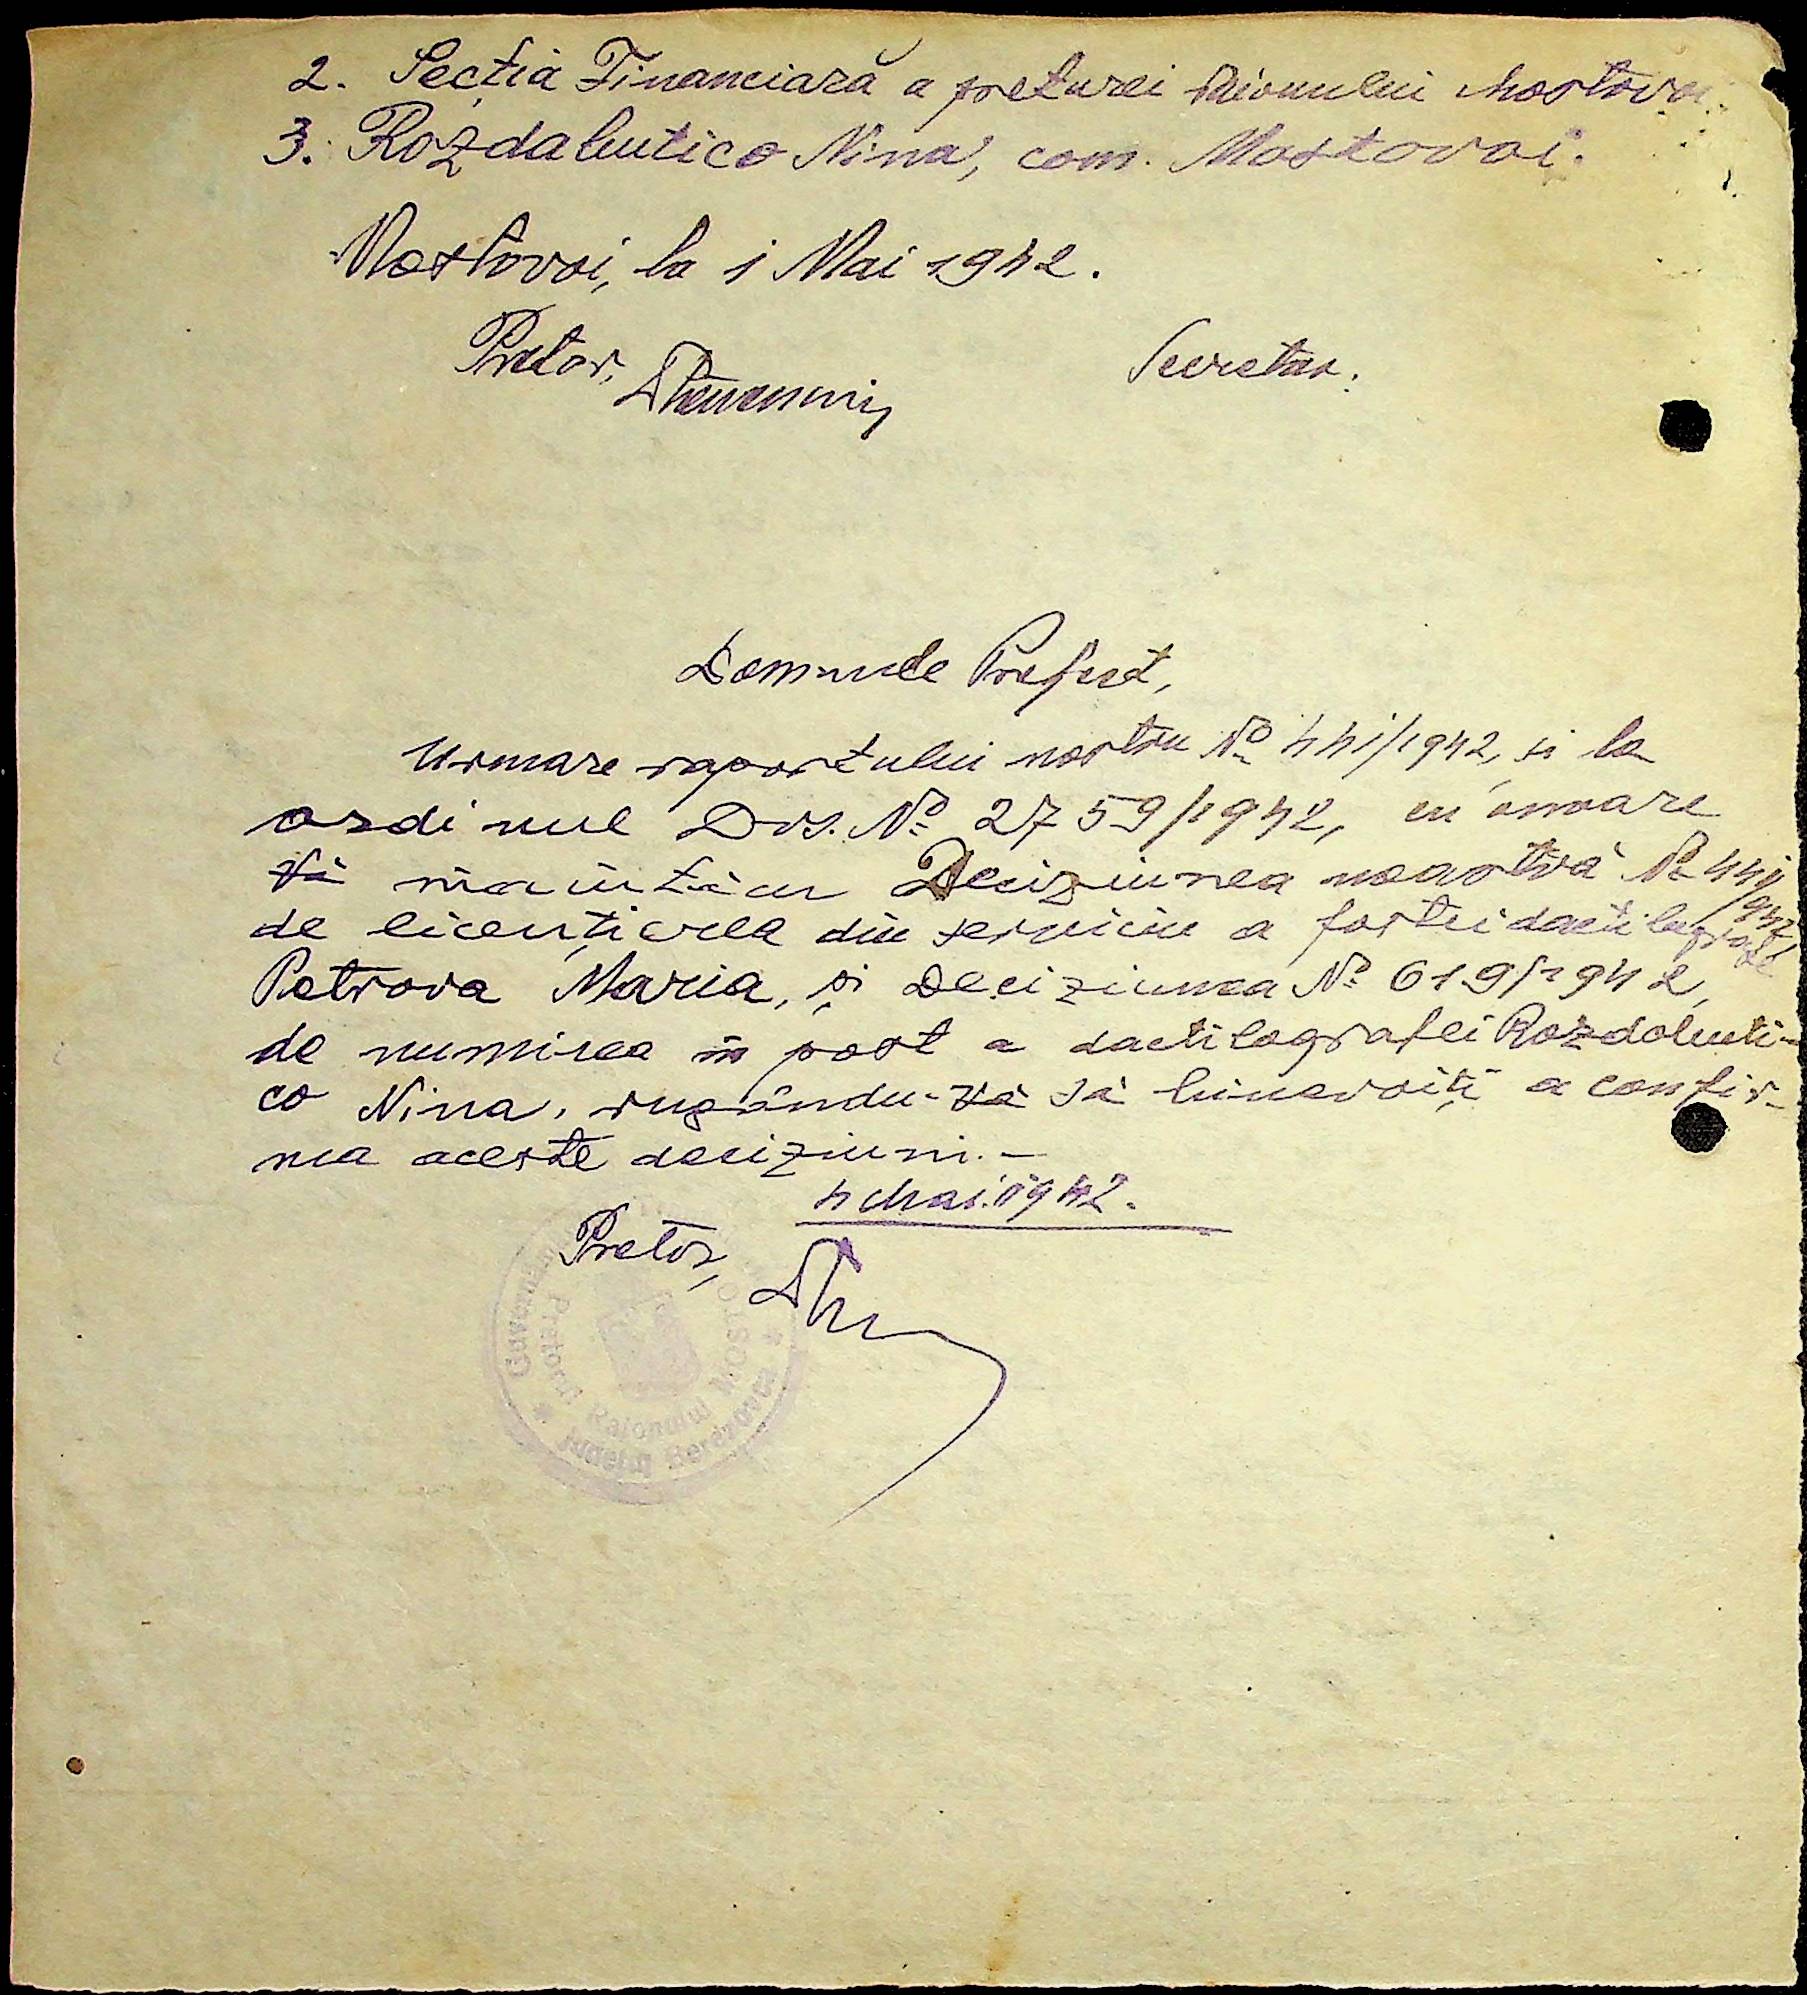 2. Secția Financiară a preturei Raionului Mostovoi.
3. Rozdabutico Nina, com. Mostovoi.
Mostovoi, la 1 Mai 1942.
Pretor,
Secretar.
Domnule Prefect,
Urmare raportului nostru No 441/1942, și la
ordinul Dvs. No 2759/1942, cu onoare
Vă înaintăm Deciziunea noastră No 441/942,
de licențierea din serviciu a fostei dactilografe
Petrova Maria, și Deciziunea No 619/1942,
de numirea în post a dactilografei Rozdobuti-
co Nina, rugându-Vă să binevoiți a confir-
ma aceste deciziuni.-
4 Mai. 1942.
Pretor,
Guvernământul
Pretorul Raionului MOSTOVOI
Județul Berezovca